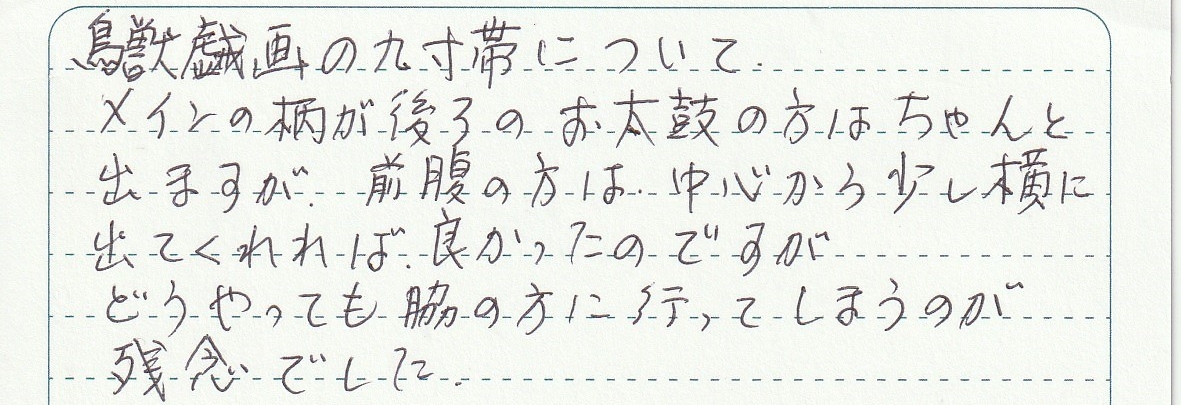 鳥獣戯画の九寸帯について.
メインの柄が後ろのお太鼓の方はちゃんと
出ますが、前腹の方は、中心から少し横に
出てくれれば、良かったのですが
どうやっても脇の方に行ってしまうのが
残念でした.